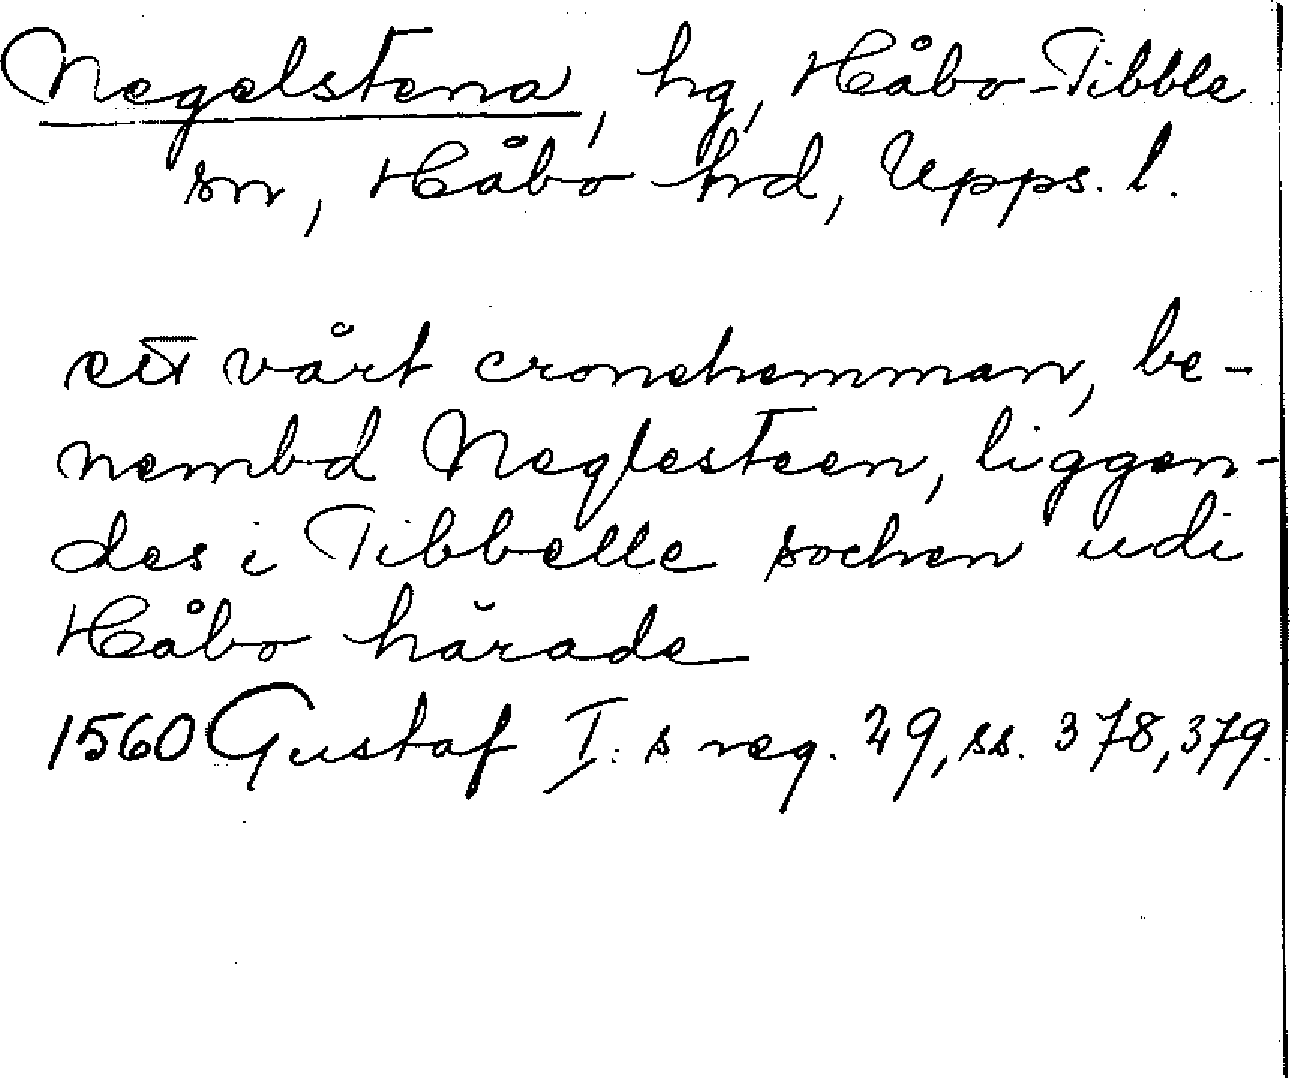 Negelstena, hg, Håbo-Tibble
sn, Håbo hd, Upps. l.
ett vårt cronehemman, be-
nembd Neglesteen, liggen-
des i Tibbelle sochen udi
Håbo härade
1560 Gustaf I:s reg. 29, ss. 378, 379.